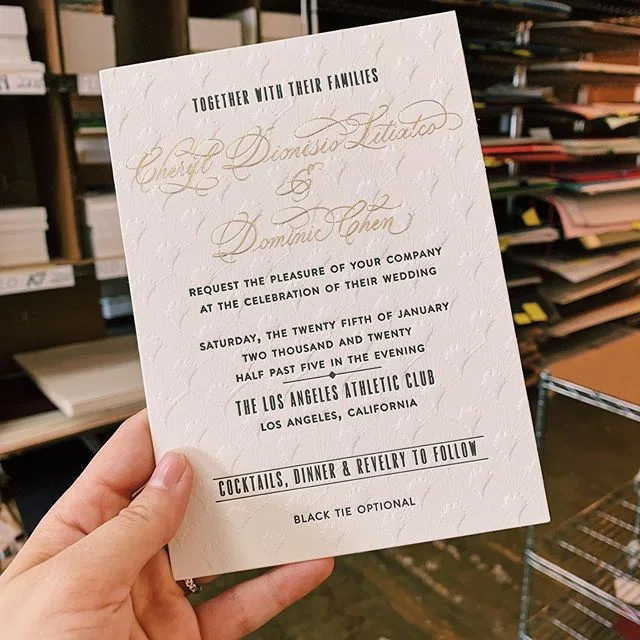 TOGETHER WITH THEIR FAMILIES
Cheryl Dionisio Litiatco
&
Dominic Chen
REQUEST THE PLEASURE OF YOUR COMPANY
AT THE CELEBRATION OF THEIR WEDDING
SATURDAY, THE TWENTY FIFTH OF JANUARY
TWO THOUSAND AND TWENTY
HALF PAST FIVE IN THE EVENING
THE LOS ANGELES ATHLETIC CLUB
LOS ANGELES, CALIFORNIA
COCKTAILS, DINNER & REVELRY TO FOLLOW
BLACK TIE OPTIONAL